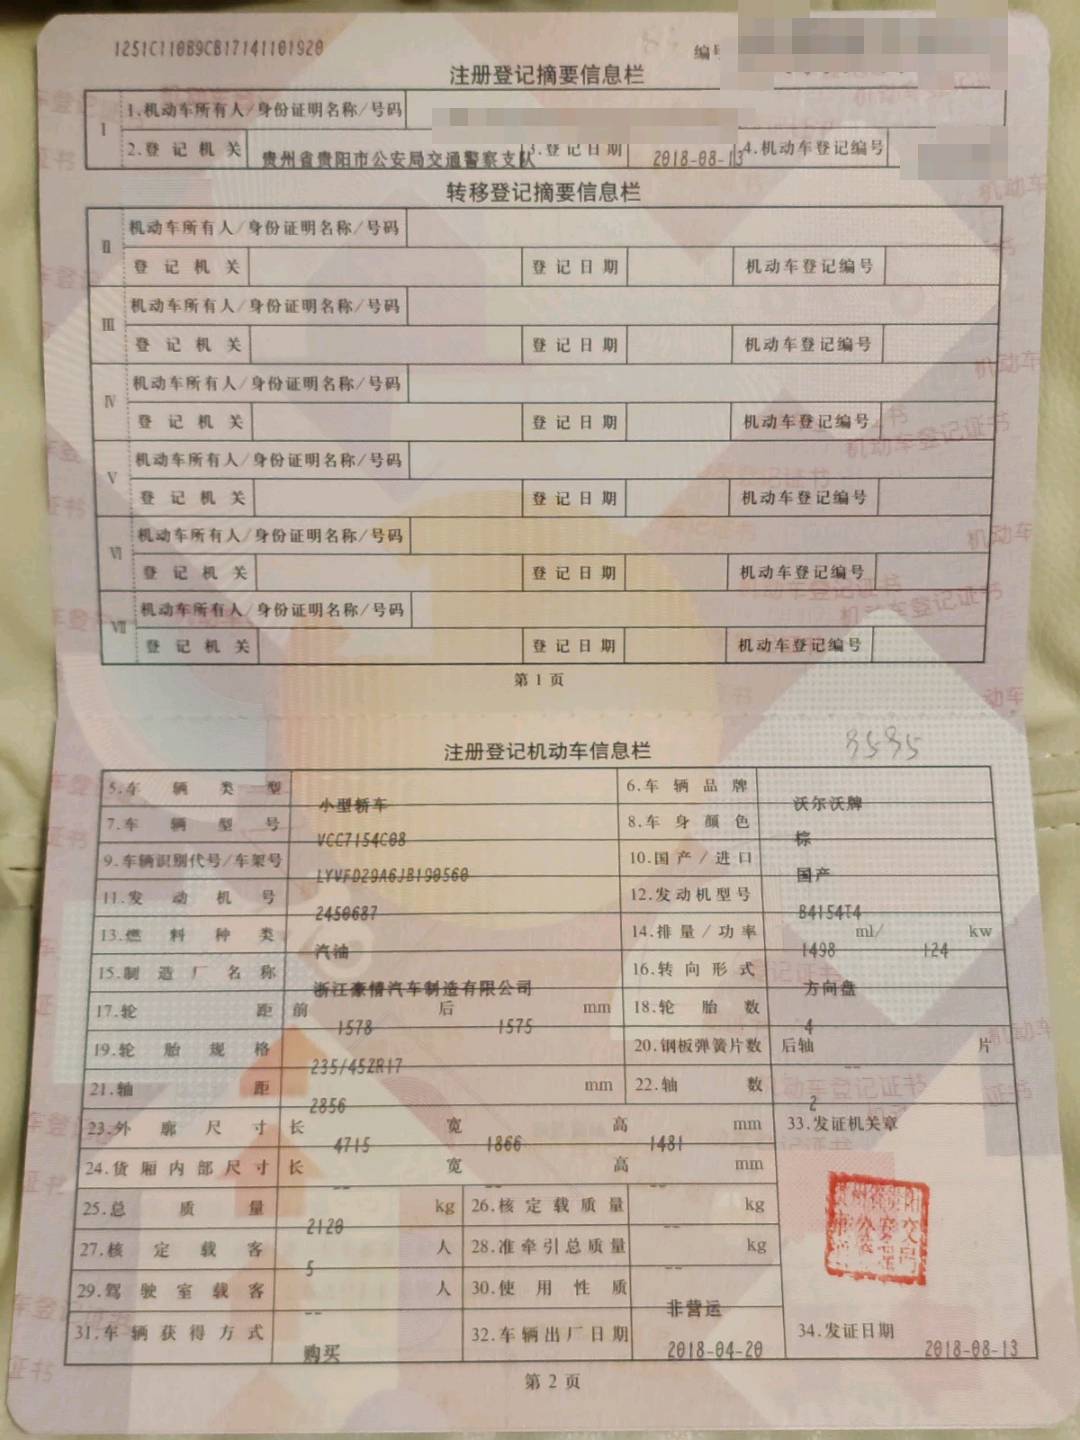 1251C110B9CB17141101920
编号
注册登记摘要信息栏
Ⅰ 1.机动车所有人/身份证明名称/号码
2.登记机关 贵州省贵阳市公安局交通警察支队 3.登记日期 2018-08-13 4.机动车登记编号
转移登记摘要信息栏
Ⅱ 机动车所有人/身份证明名称/号码
登记机关 登记日期 机动车登记编号
Ⅲ 机动车所有人/身份证明名称/号码
登记机关 登记日期 机动车登记编号
Ⅳ 机动车所有人/身份证明名称/号码
登记机关 登记日期 机动车登记编号
Ⅴ 机动车所有人/身份证明名称/号码
登记机关 登记日期 机动车登记编号
Ⅵ 机动车所有人/身份证明名称/号码
登记机关 登记日期 机动车登记编号
Ⅶ 机动车所有人/身份证明名称/号码
登记机关 登记日期 机动车登记编号
第 1 页
注册登记机动车信息栏
3535
5.车辆类型 小型轿车 6.车辆品牌 沃尔沃牌
7.车辆型号 VCC7154C08 8.车身颜色 棕
9.车辆识别代号/车架号 LYVFD29A6JB190560 10.国产/进口 国产
11.发动机号 2450687 12.发动机型号 B4154T4
13.燃料种类 汽油 14.排量/功率 1498 ml/ 124 kw
15.制造厂名称 浙江豪情汽车制造有限公司 16.转向形式 方向盘
17.轮距 前 1578 后 1575 mm 18.轮胎数 4
19.轮胎规格 235/45ZR17 20.钢板弹簧片数 后轴 -- 片
21.轴距 2856 mm 22.轴数 2
23.外廓尺寸 长 4715 宽 1866 高 1481 mm 33.发证机关章
24.货厢内部尺寸 长 -- 宽 -- 高 -- mm
25.总质量 2120 kg 26.核定载质量 -- kg
27.核定载客 5 人 28.准牵引总质量 -- kg
29.驾驶室载客 -- 人 30.使用性质 非营运
31.车辆获得方式 购买 32.车辆出厂日期 2018-04-20 34.发证日期 2018-08-13
第 2 页